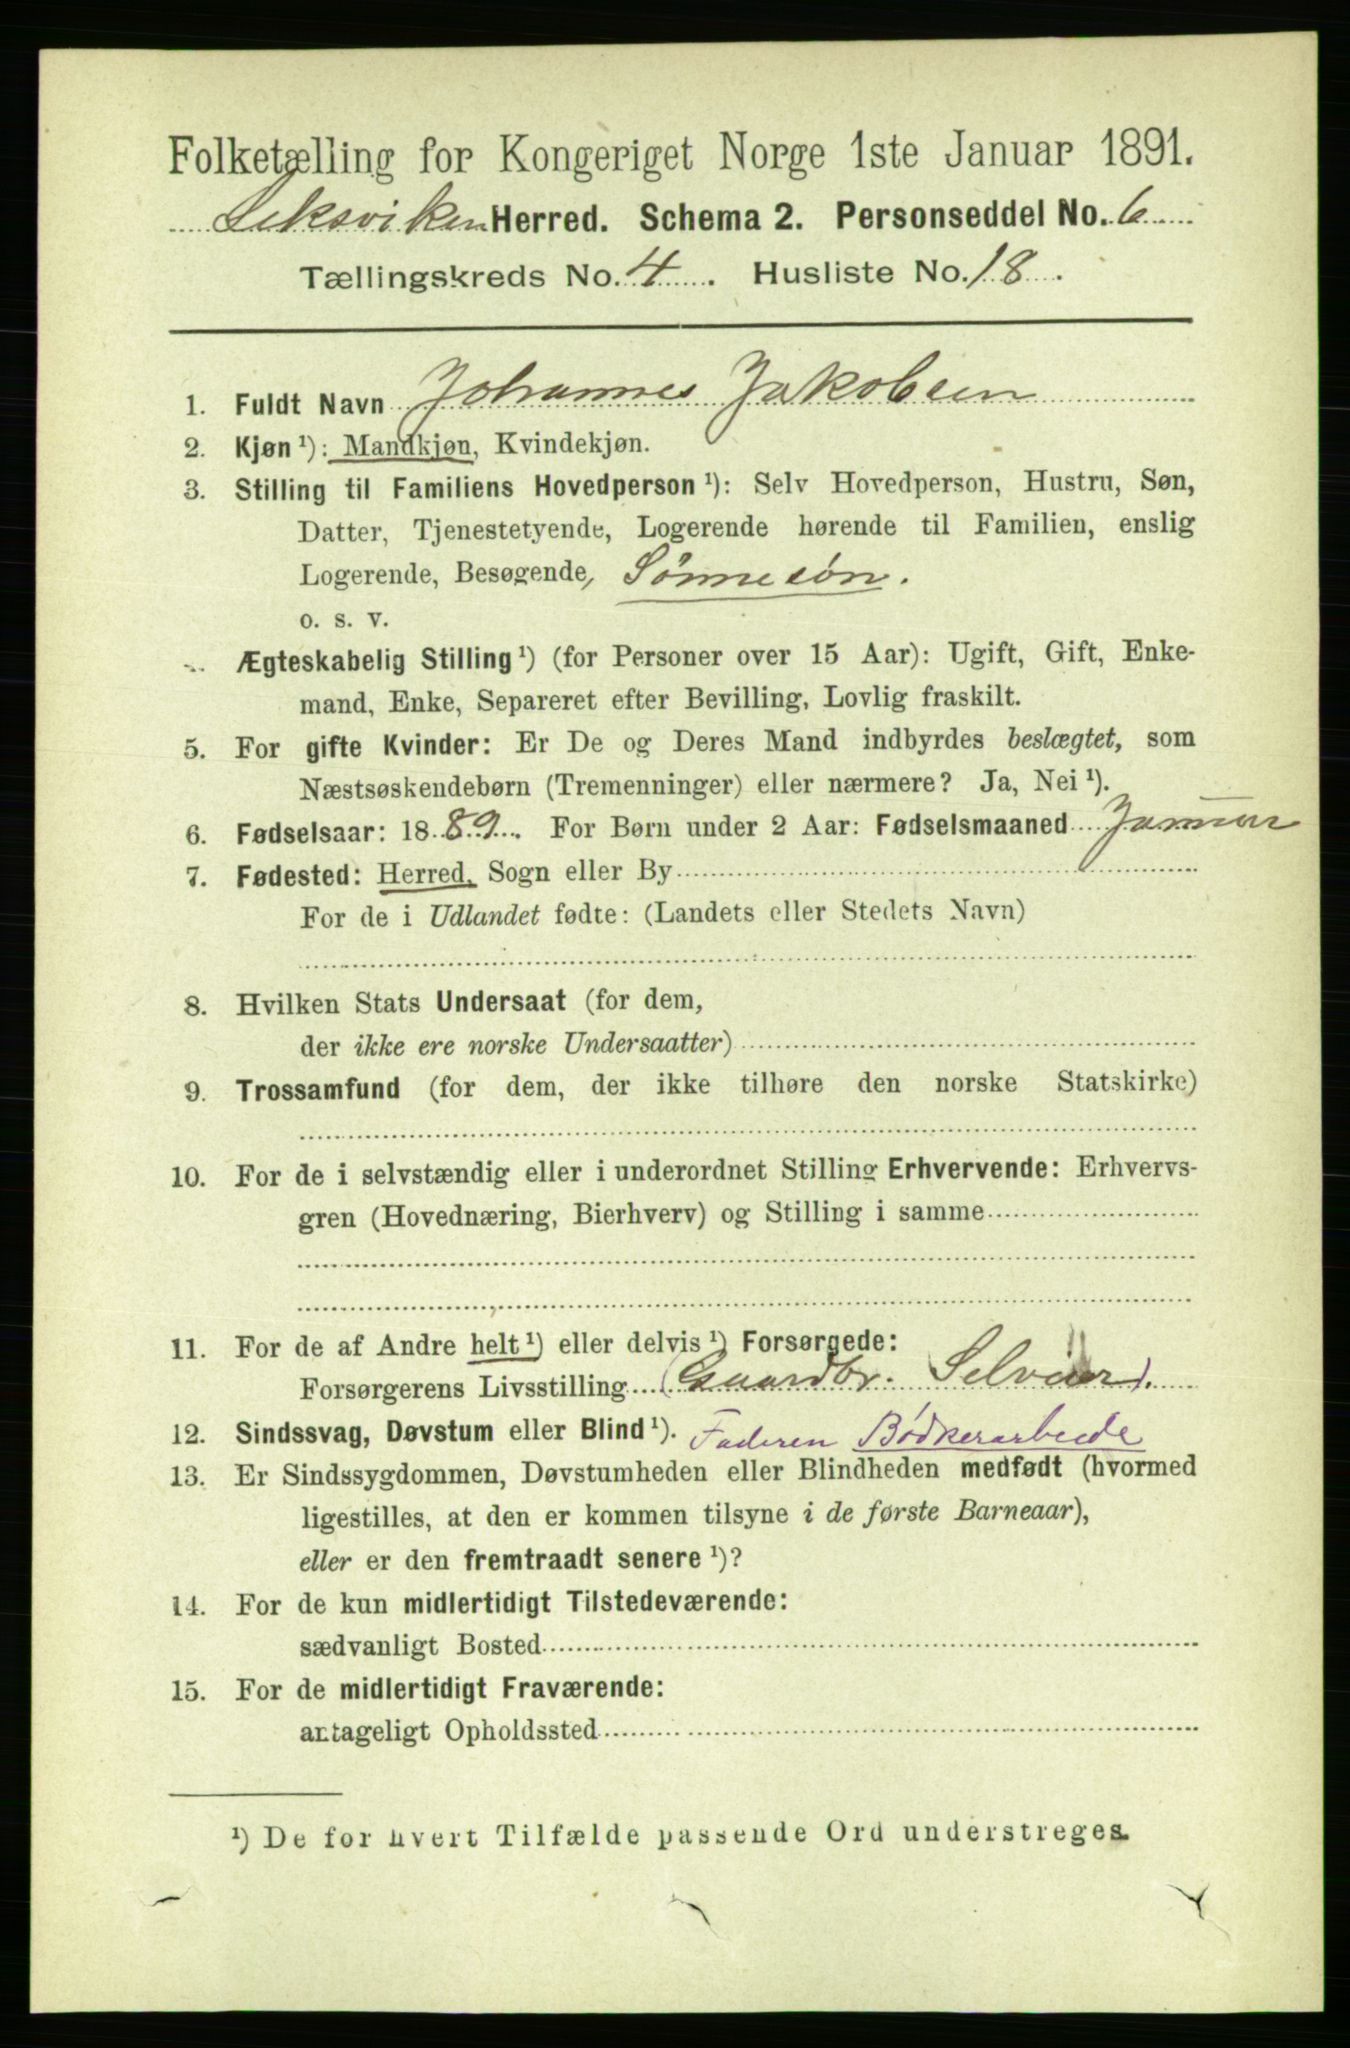 Folketælling for Kongeriget Norge 1ste Januar 1891.
Leksviken Herred. Schema 2. Personseddel No. 6
Tællingskreds No. 4. Husliste No. 18.
1. Fuldt Navn Johannes Jakobsen
2. Kjøn¹): Mandkjøn, Kvindekjøn.
3. Stilling til Familiens Hovedperson¹): Selv Hovedperson, Hustru, Søn,
Datter, Tjenestetyende, Logerende hørende til Familien, enslig
Logerende, Besøgende, Sønnesøn.
o. s. v.
Ægteskabelig Stilling¹) (for Personer over 15 Aar): Ugift, Gift, Enke-
mand, Enke, Separeret efter Bevilling, Lovlig fraskilt.
5. For gifte Kvinder: Er De og Deres Mand indbyrdes beslægtet, som
Næstsøskendebørn (Tremenninger) eller nærmere? Ja, Nei¹).
6. Fødselsaar: 1889. For Børn under 2 Aar: Fødselsmaaned Januar
7. Fødested: Herred, Sogn eller By
For de i Udlandet fødte: (Landets eller Stedets Navn)
8. Hvilken Stats Undersaat (for dem,
der ikke ere norske Undersaatter)
9. Trossamfund (for dem, der ikke tilhøre den norske Statskirke)
10. For de i selvstændig eller i underordnet Stilling Erhvervende: Erhvervs-
gren (Hovednæring, Bierhverv) og Stilling i samme
11. For de af Andre helt¹) eller delvis¹) Forsørgede:
Forsørgerens Livsstilling (Gaardbr. Selveier).
12. Sindssvag, Døvstum eller Blind¹). Faderen Bødkerarbeide
13. Er Sindssygdommen, Døvstumheden eller Blindheden medfødt (hvormed
ligestilles, at den er kommen tilsyne i de første Barneaar),
eller er den fremtraadt senere¹)?
14. For de kun midlertidigt Tilstedeværende:
sædvanligt Bosted
15. For de midlertidigt Fraværende:
antageligt Opholdssted
¹) De for hvert Tilfælde passende Ord understreges.